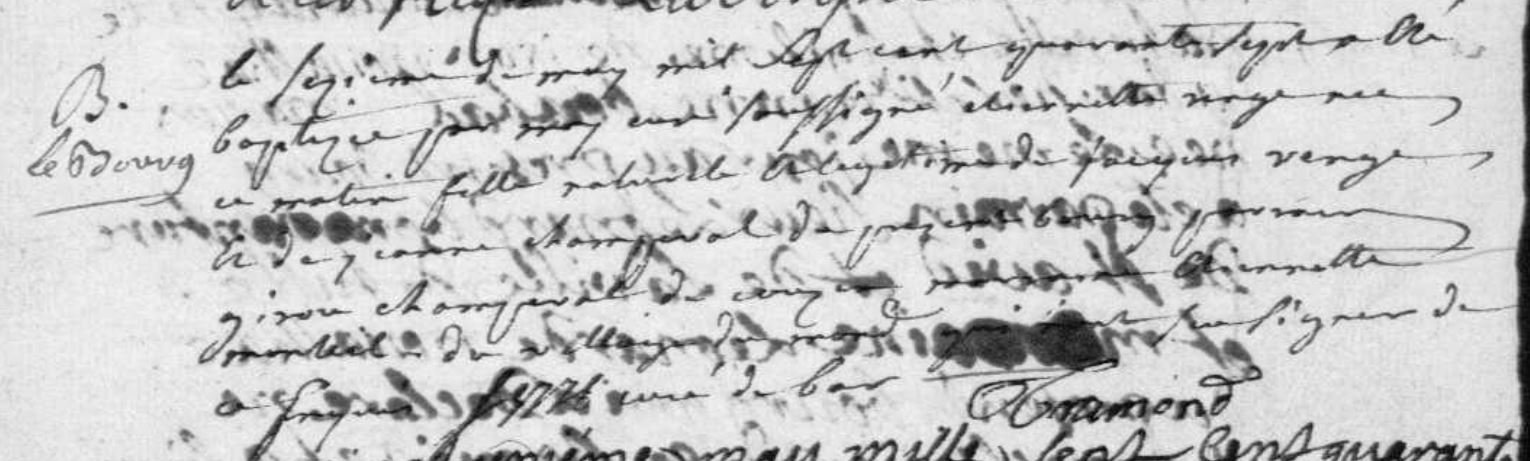 B.
le Bourg
le sezieme de may mil sept cent quarante sept a été
baptizée par moy curé soussigné etiennette verge née
ce matin fille naturelle et legitime de jacques verge
et de jeanne champeval du present bourg parrain
girou champeval de marraine etiennette
monteil du village du qui n'ont su signer de
ce requis curé de bar Tramond
may mille sept cent quarant